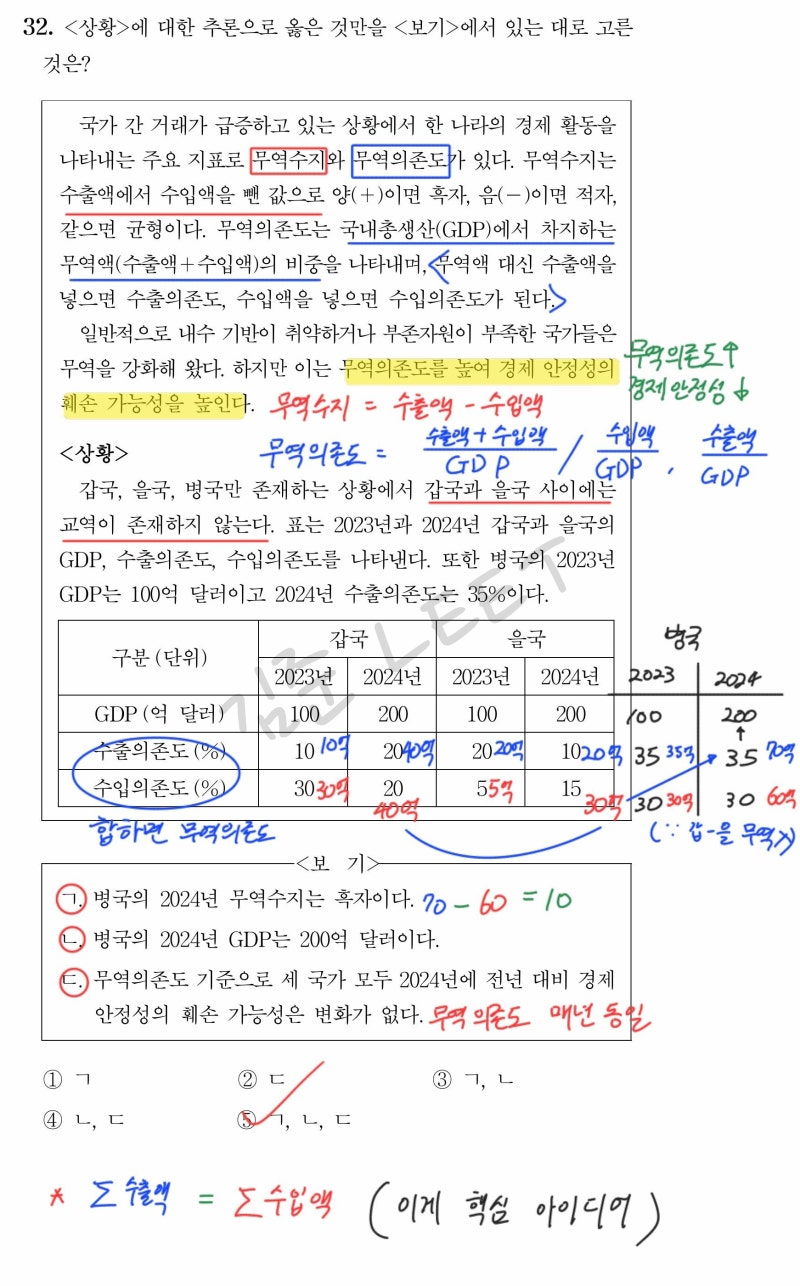 32. <상황>에 대한 추론으로 옳은 것만을 <보기>에서 있는 대로 고른
것은?
국가 간 거래가 급증하고 있는 상황에서 한 나라의 경제 활동을
나타내는 주요 지표로 무역수지와 무역의존도가 있다. 무역수지는
수출액에서 수입액을 뺀 값으로 양(+)이면 흑자, 음(-)이면 적자,
같으면 균형이다. 무역의존도는 국내총생산(GDP)에서 차지하는
무역액(수출액+수입액)의 비중을 나타내며, <무역액 대신 수출액을
넣으면 수출의존도, 수입액을 넣으면 수입의존도가 된다.>
일반적으로 내수 기반이 취약하거나 부존자원이 부족한 국가들은
무역을 강화해 왔다. 하지만 이는 무역의존도를 높여 경제 안정성의
훼손 가능성을 높인다.
무역의존도↑
경제안정성↓
무역수지 = 수출액 - 수입액
무역의존도 = 수출액+수입액 / GDP / 수입액 / GDP, 수출액 / GDP
<상황>
갑국, 을국, 병국만 존재하는 상황에서 갑국과 을국 사이에는
교역이 존재하지 않는다. 표는 2023년과 2024년 갑국과 을국의
GDP, 수출의존도, 수입의존도를 나타낸다. 또한 병국의 2023년
GDP는 100억 달러이고 2024년 수출의존도는 35%이다.
김준 LEET
구분(단위) 갑국 을국 병국
2023년 2024년 2023년 2024년 2023 2024
GDP(억 달러) 100 200 100 200 100 200
↑
수출의존도(%) 10 10억 20 40억 20 20억 10 20억 35 35억 35 70억
수입의존도(%) 30 30억 20 40억 5 5억 15 30억 30 30억 30 60억
합하면 무역의존도
(∵ 갑-을 무역X)
<보 기>
ㄱ. 병국의 2024년 무역수지는 흑자이다. 70 - 60 = 10
ㄴ. 병국의 2024년 GDP는 200억 달러이다.
ㄷ. 무역의존도 기준으로 세 국가 모두 2024년에 전년 대비 경제
안정성의 훼손 가능성은 변화가 없다. 무역의존도 매년 동일
① ㄱ ② ㄷ ③ ㄱ, ㄴ
④ ㄴ, ㄷ ⑤ ㄱ, ㄴ, ㄷ
* ∑수출액 = ∑수입액 (이게 핵심 아이디어)